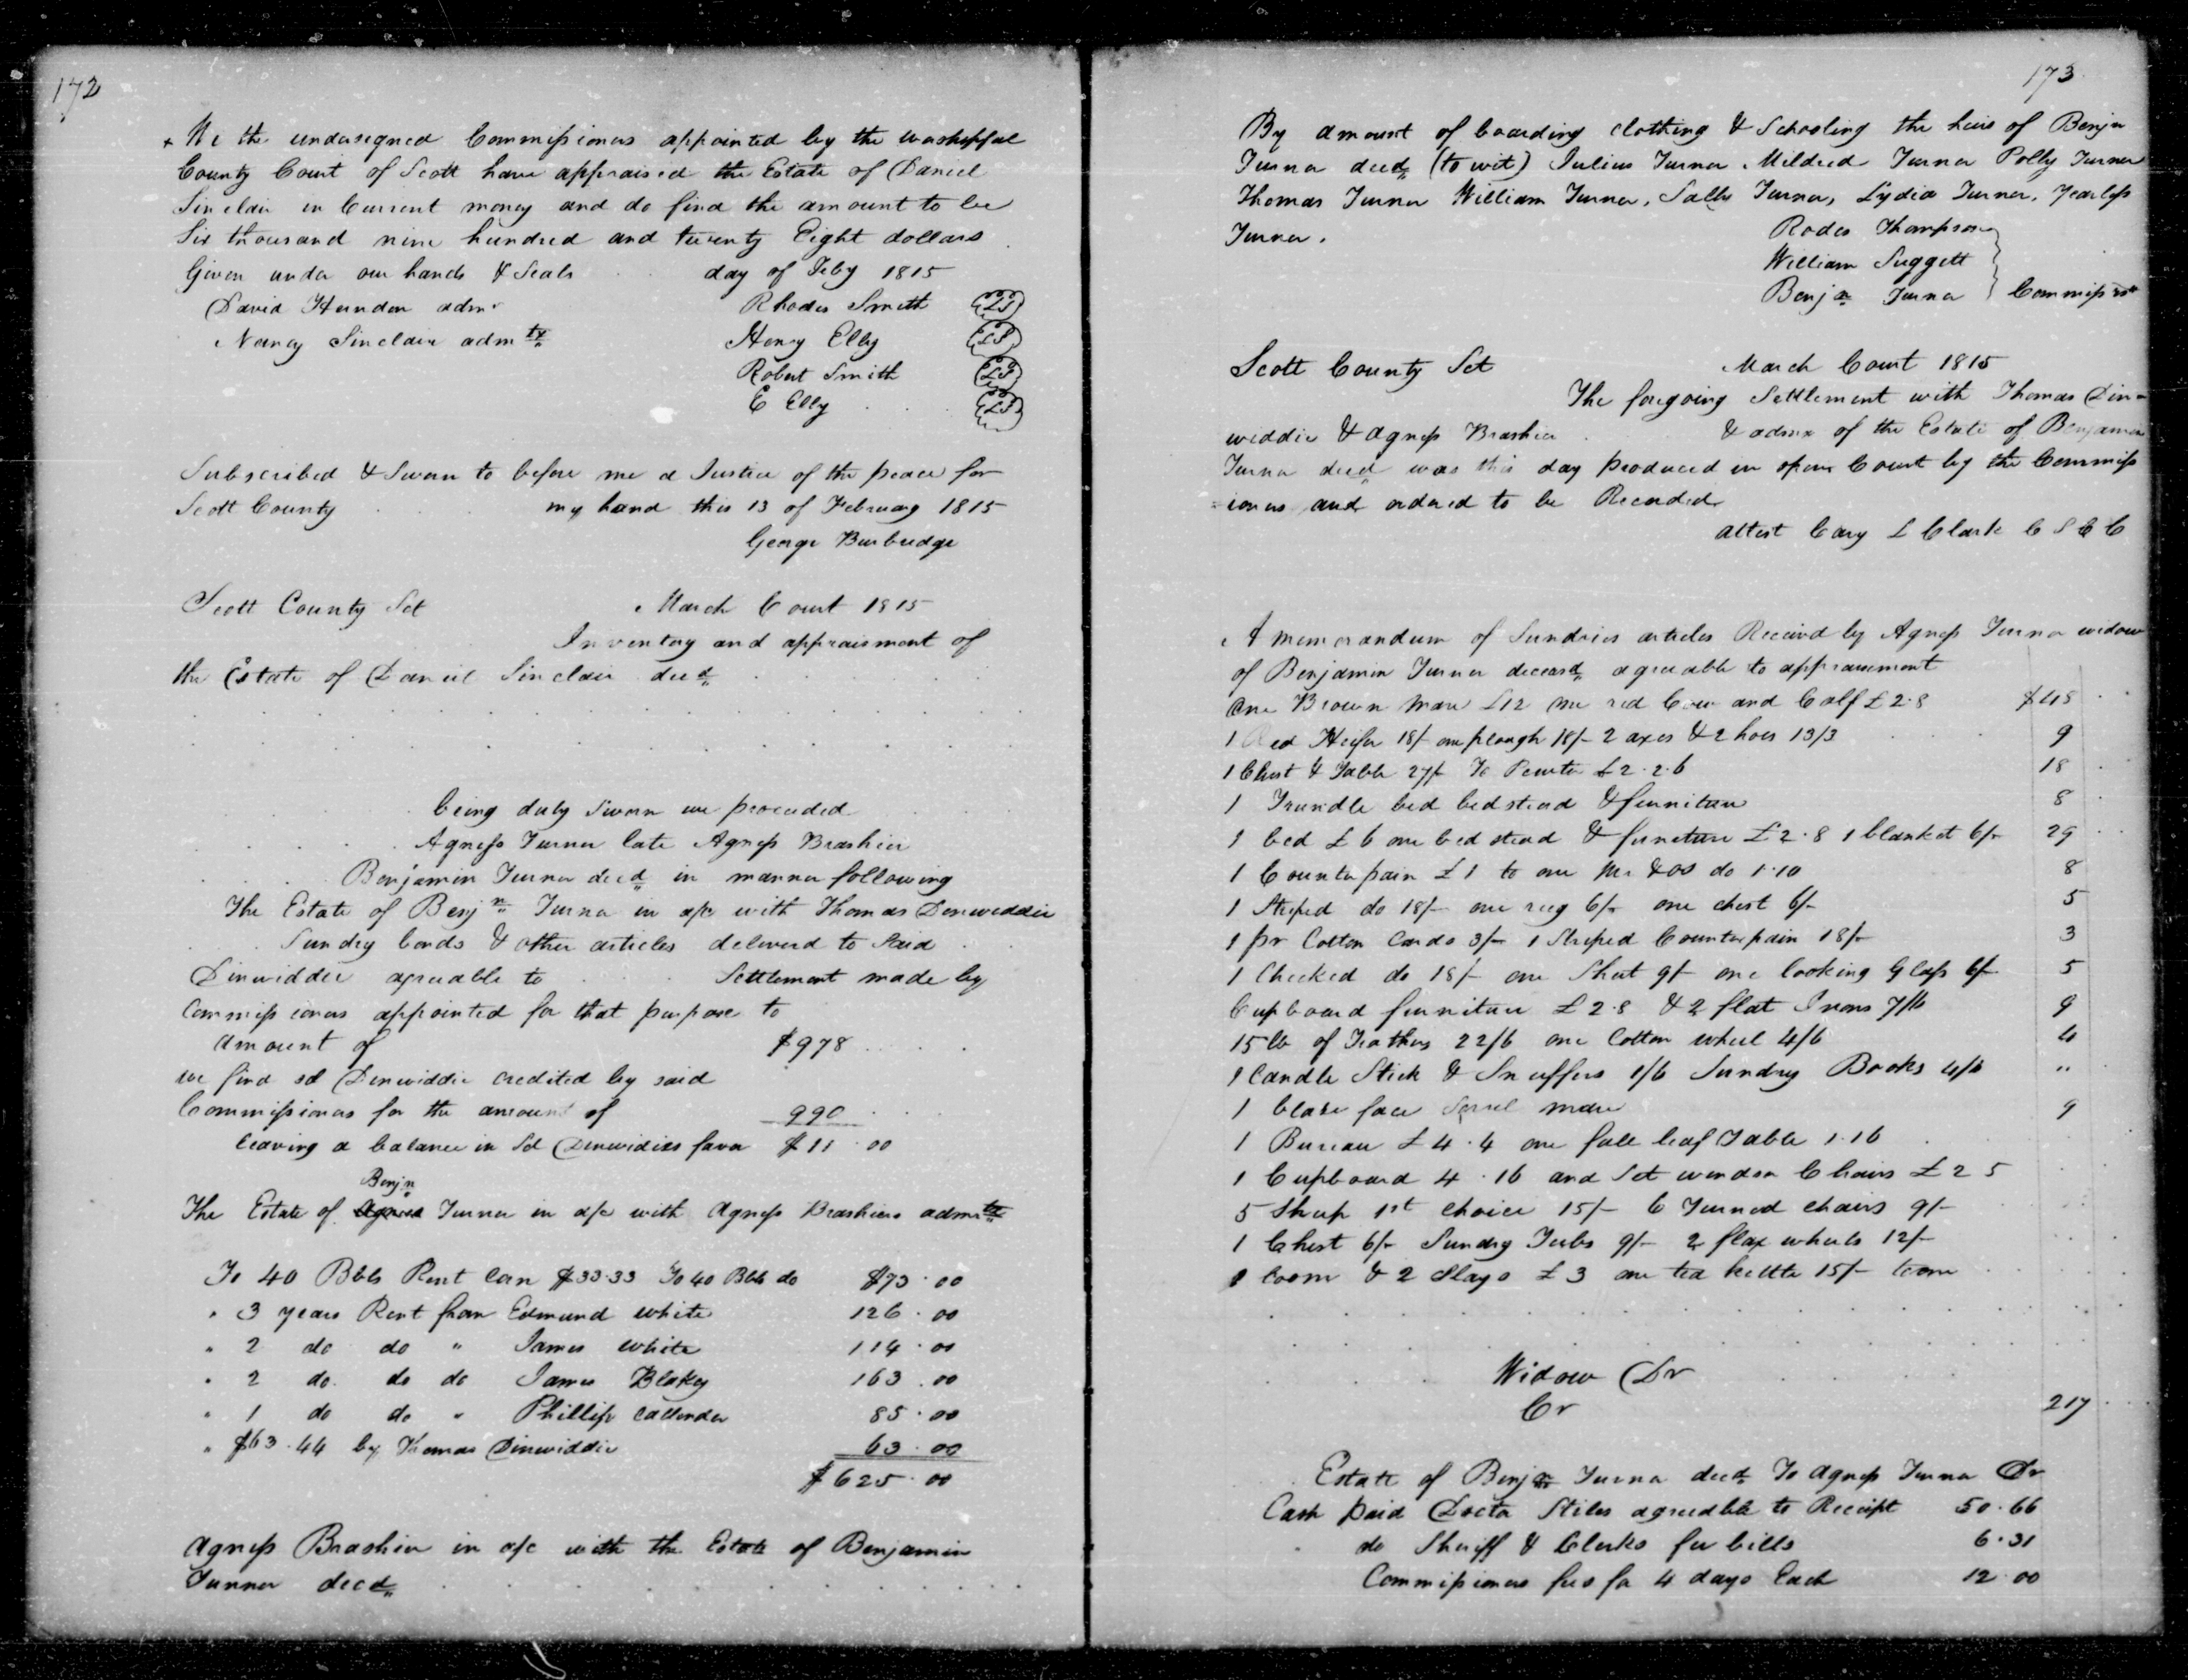 172
+ We the undersigned Commissioners appointed by the worshipful
County Court of Scott have appraised the Estate of Daniel
Sinclair in Current money and do find the amount to be
Six thousand nine hundred and twenty Eight dollars
Given under our hands & Seals . . day of Feby 1815
David Herndon admr Rhodes Smith (LS)
Nancy Sinclair admtx Henry Elly (LS)
Robert Smith (LS)
E Elly . . . (LS)
Subscribed & Sworn to before me a Justice of the peace for
Scott County . . . my hand this 13 of February 1815
George Burbridge
Scott County Sct March Court 1815
Inventory and appraisment of
the Estate of Daniel Sinclair decd
being duly Sworn we proceeded
Agness Turner late Agness Brashier
Benjamin Turner decd in manner following
The Estate of Benjn Turner in a/c with Thomas Dinwiddie
Sundry bonds & other articles delivered to Said
Dinwiddie agreeable to . . Settlement made by
Commissioners appointed for that purpose to
amount of $978
we find sd Dinwiddie credited by said
Commissioners for the amount of 990
leaving a balance in Sd Dinwidies favor $11.00
Benjn
The Estate of Agness Turner in a/c with Agness Brashiers admrtx
To 40 Bbls Rent Corn $33.33 To 40 Bbls do $73.00
" 3 years Rent from Edmund white 126.00
" 2 do do " James white 114.00
" 2 do do do James Blakey 163.00
" 1 do do " Phillip Callender 85.00
" $63.44 by Thomas Dinwiddie 63.00
$625.00
Agness Brashier in a/c with the Estate of Benjamin
Turner decd
173
By amount of boarding clothing & Schooling the heirs of Benjn
Turner decd (to wit) Julius Turner Mildred Turner Polly Turner
Thomas Turner William Turner, Sally Turner, Lydia Turner,
Turner. Rodes Thompson
William Suggett
Benjn Turner Commissrs
Scott County Sct March Court 1815
The foregoing Settlement with Thomas Din-
widdie & Agness Brashier . & admx of the Estate of Benjamin
Turner decd was this day produced in open Court by the Commiss
=ioners and ordered to be Recorded
attest Cary L Clark C S C C
A memorandum of Sundries articles Received by Agness Turner widow
of Benjamin Turner deceasd agreeable to appraisement
One Brown Mare £12 one red Cow and Calf £2.8 $48
1 Red Heifer 18/- one plough 18/- 2 axes & 2 hoes 13/3 9
1 Chest & Table 27/- To Pewter £2.2.6 18
1 Trundle bed bedstead & furniture 8
1 bed £6 one bed stead & furniture £2.8 1 blanket 6/- 29
1 Counterpain £1 to one do 1.10 8
1 Striped do 18/- one rug 6/- one chest 6/- 5
1 pr Cotton Cards 3/- 1 Striped Counterpain 18/- 3
1 Checked do 18/- one Sheet 9/- one looking Glass 6/- 5
Cupboard furniture £2.8 & 2 flat Irons 7/6 9
15 lb of Feathers 22/6 one Cotton wheel 4/6 4
1 Candle Stick & Snuffers 1/6 Sundry Books 4/6 "
1 blaze face Sorrel mare 9
1 Bureau £4.4 one fall leaf Table 1.16
1 Cupboard 4.16 and Set windsor Chairs £2 5
5 Sheep 1st choice 15/- 6 Turned chairs 9/-
1 Chest 6/- Sundry Tubs 9/- 2 flax wheels 12/-
1 Loom & 2 Slays £3 one tea kettle 15/-
Widow Dr
Cr 217
Estate of Benjn Turner decd To Agness Turner Dr
Cash paid Doctor Stiles agreeable to Receipt 50.66
do Sheriff & Clerks fee bills 6.31
Commissioners fees for 4 days Each 12.00